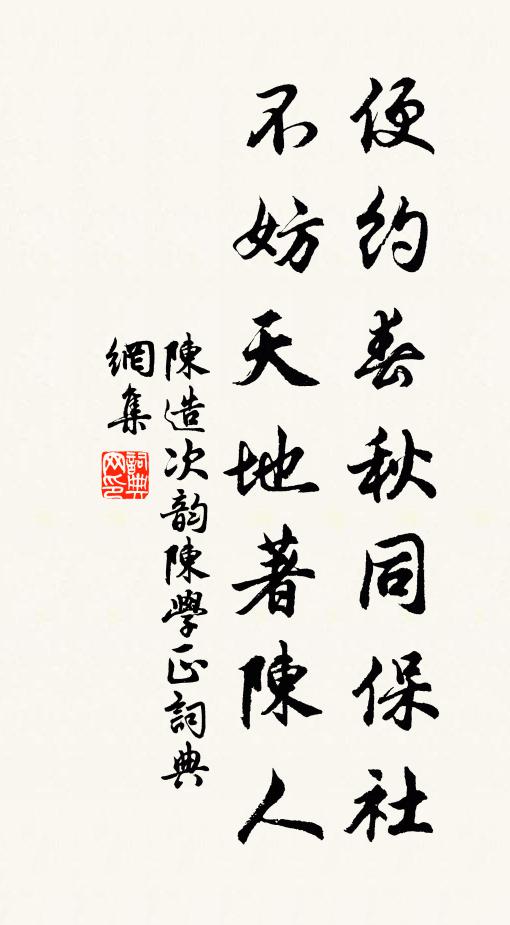 便約春秋同保社
不妨天地著陳人
陳造次韵陳學正詞典
網集
詞典网印